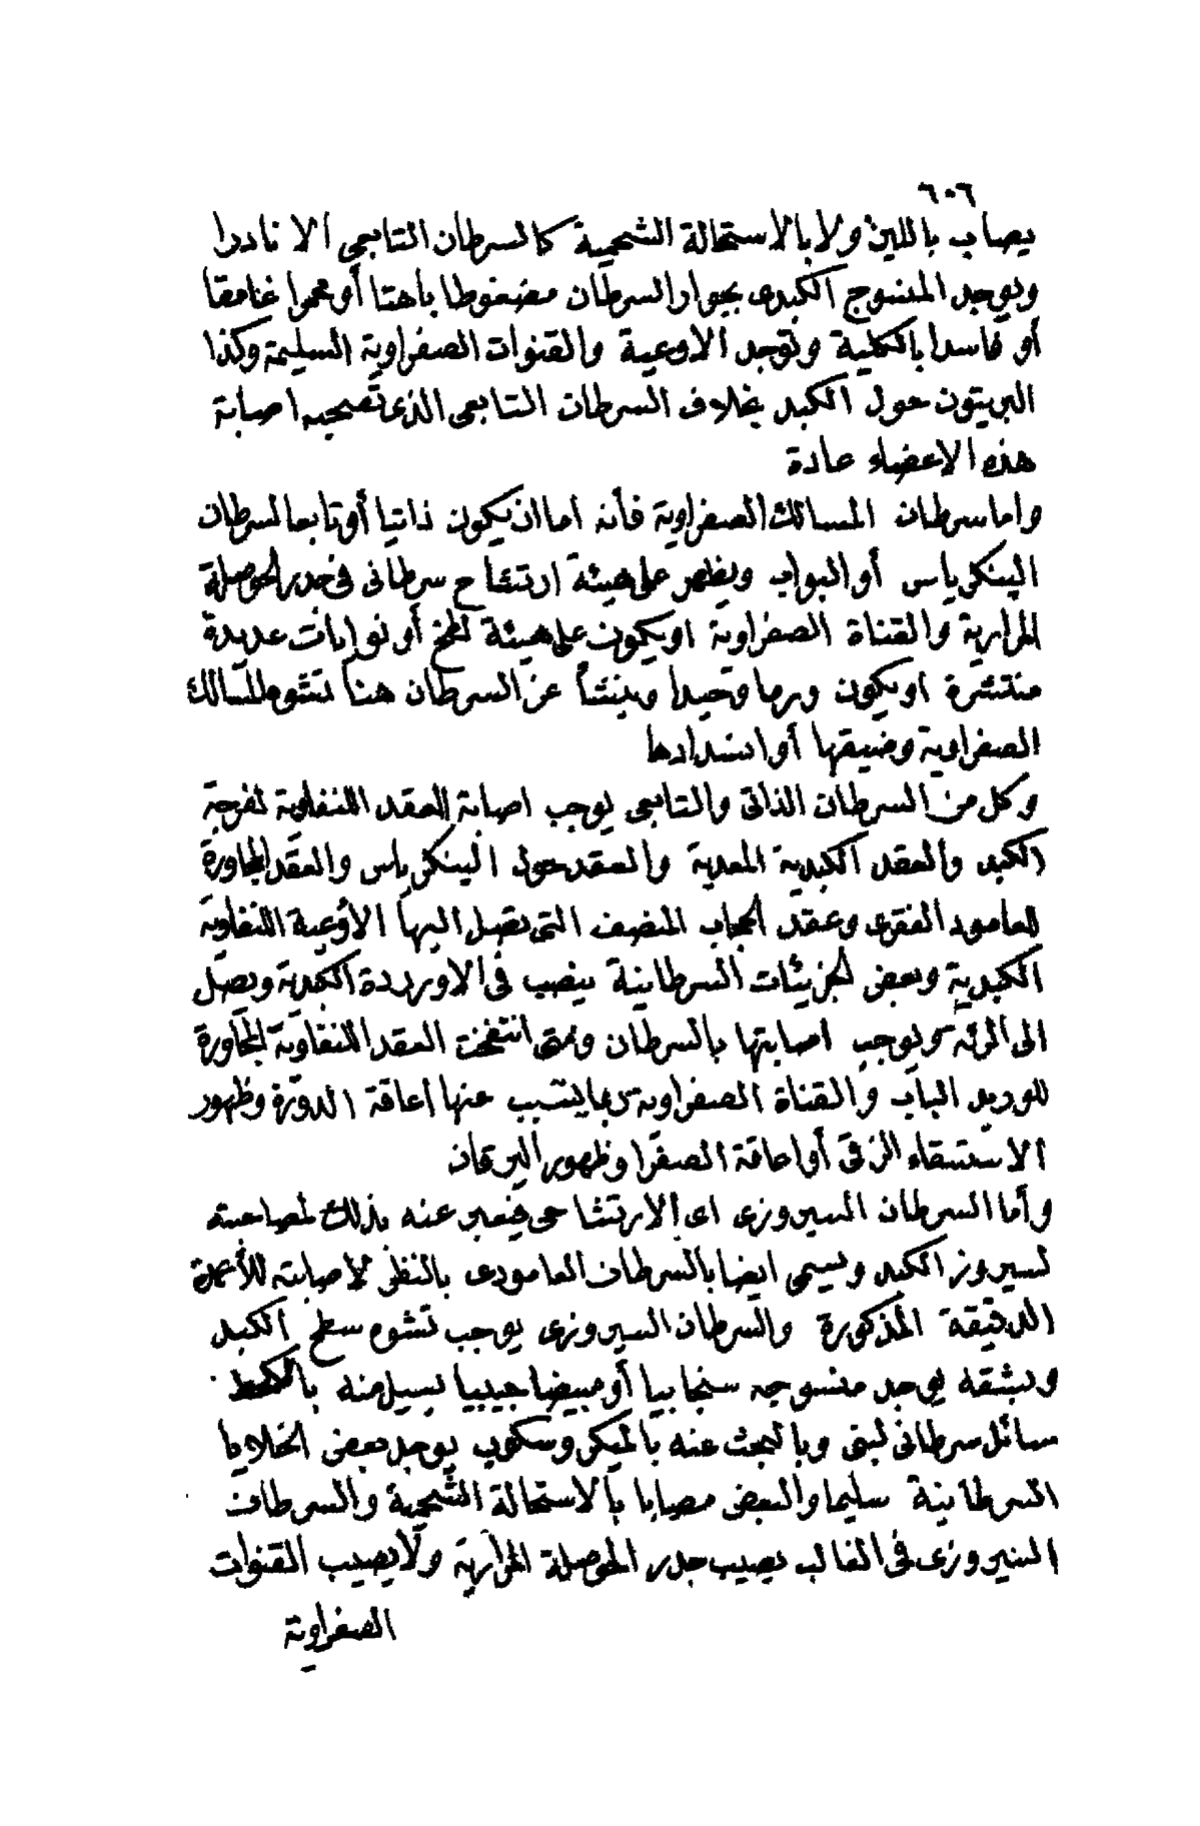 ٦٠٦
يصاب باللين ولا بالاستحالة الشحمية كالسرطان التابعي الا نادرا
ويوجد المنسوج الكبدى بجوار السرطان مضغوطا باهتا أو محمرا غامقا
أو فاسدا بالكلية وتوجد الاوعية والقنوات الصفراوية السليمة وكذا
البريتون حول الكبد بخلاف السرطان التابعى الذى تصحبه اصابة
هذه الاعضاء عادة
واما سرطان المسالك الصفراوية فأنه اما ان يكون ذاتيا أو تابعا لسرطان
البنكرياس أو البواب ويظهر على هيئة ارتشاح سرطانى فى جدر الحوصلة
المرارية والقناة الصفراوية او يكون على هيئة لطخ أو نوايات عديدة
منتشرة او يكون ورما وحيدا وينشأ عن السرطان هنا تشوه المسالك
الصفراوية وضيقها أو انسدادها
وكل من السرطان الذاتى والتابعى يوجب اصابة العقد اللنفاوية لفرجة
الكبد والعقد الكبدية المعدية والعقد حول البنكرياس والعقد المجاورة
للعامود الفقرى وعقد الحجاب المنصف التى تصل اليها الأوعية اللنفاوية
الكبدية وبعض الجزيئات السرطانية ينصب فى الاوردة الكبدية ويصل
الى الرئة ويوجب اصابتها بالسرطان ومتى انتفخت العقد اللنفاوية المجاورة
للوريد الباب والقناة الصفراوية ربما يتسبب عنها اعاقة الدورة وظهور
الاستسقاء الزقى أو اعاقة الصفرا وظهور اليرقان
وأما السرطان السيروزى اى الارتشاحى فيعبر عنه بذلك لمصاحبته
لسيروز الكبد ويسمى ايضا بالسرطان العامودى بالنظر لاصابته للأعمدة
الدقيقة المذكورة والسرطان السيروزى يوجب تشوه سطح الكبد
وبشقه يوجد منسوجه سنجابيا أو مبيضا حبيبيا يسيل منه بالكحط
سائل سرطانى لبنى وبالبحث عنه بالميكروسكوب يوجد بعض الخلايا
السرطانية سليما والبعض مصابا بالاستحالة الشحمية والسرطان
السيروزى فى الغالب يصيب جدر الحوصلة المرارية ولا يصيب القنوات
الصفراوية